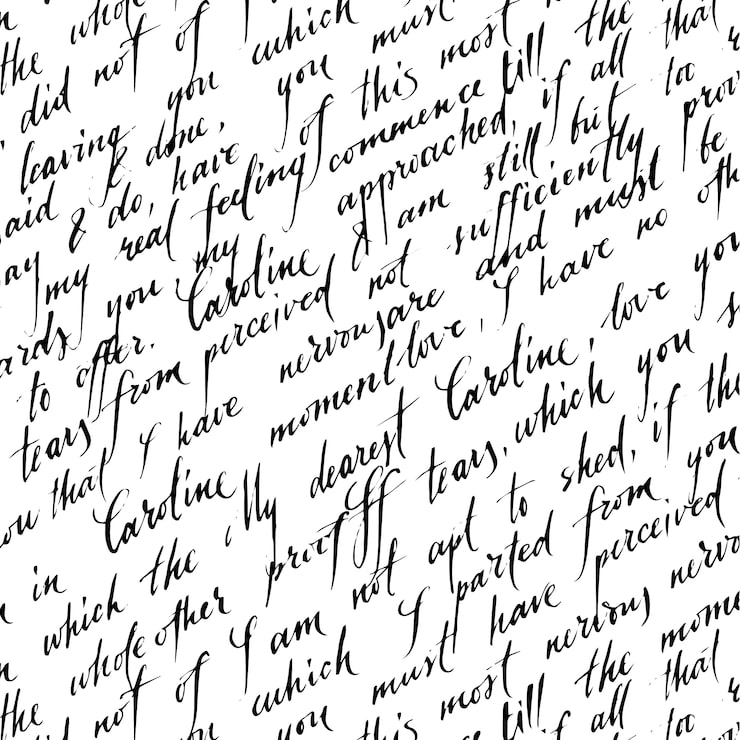 the whole
did not of which must
leaving you you this most till the that
said & done, have of commence if all too
say & do, real feeling approached, still but
my you my & am sufficiently
to offer. Caroline not and must be
tears from perceived nervous are I have no
that I have moment love, love you
in Caroline My dearest Caroline, you
which the proof tears, which
whole other not apt to shed, if the
the of I am I parted from you
not which must have perceived
you this most nervous
till the
if all that
too